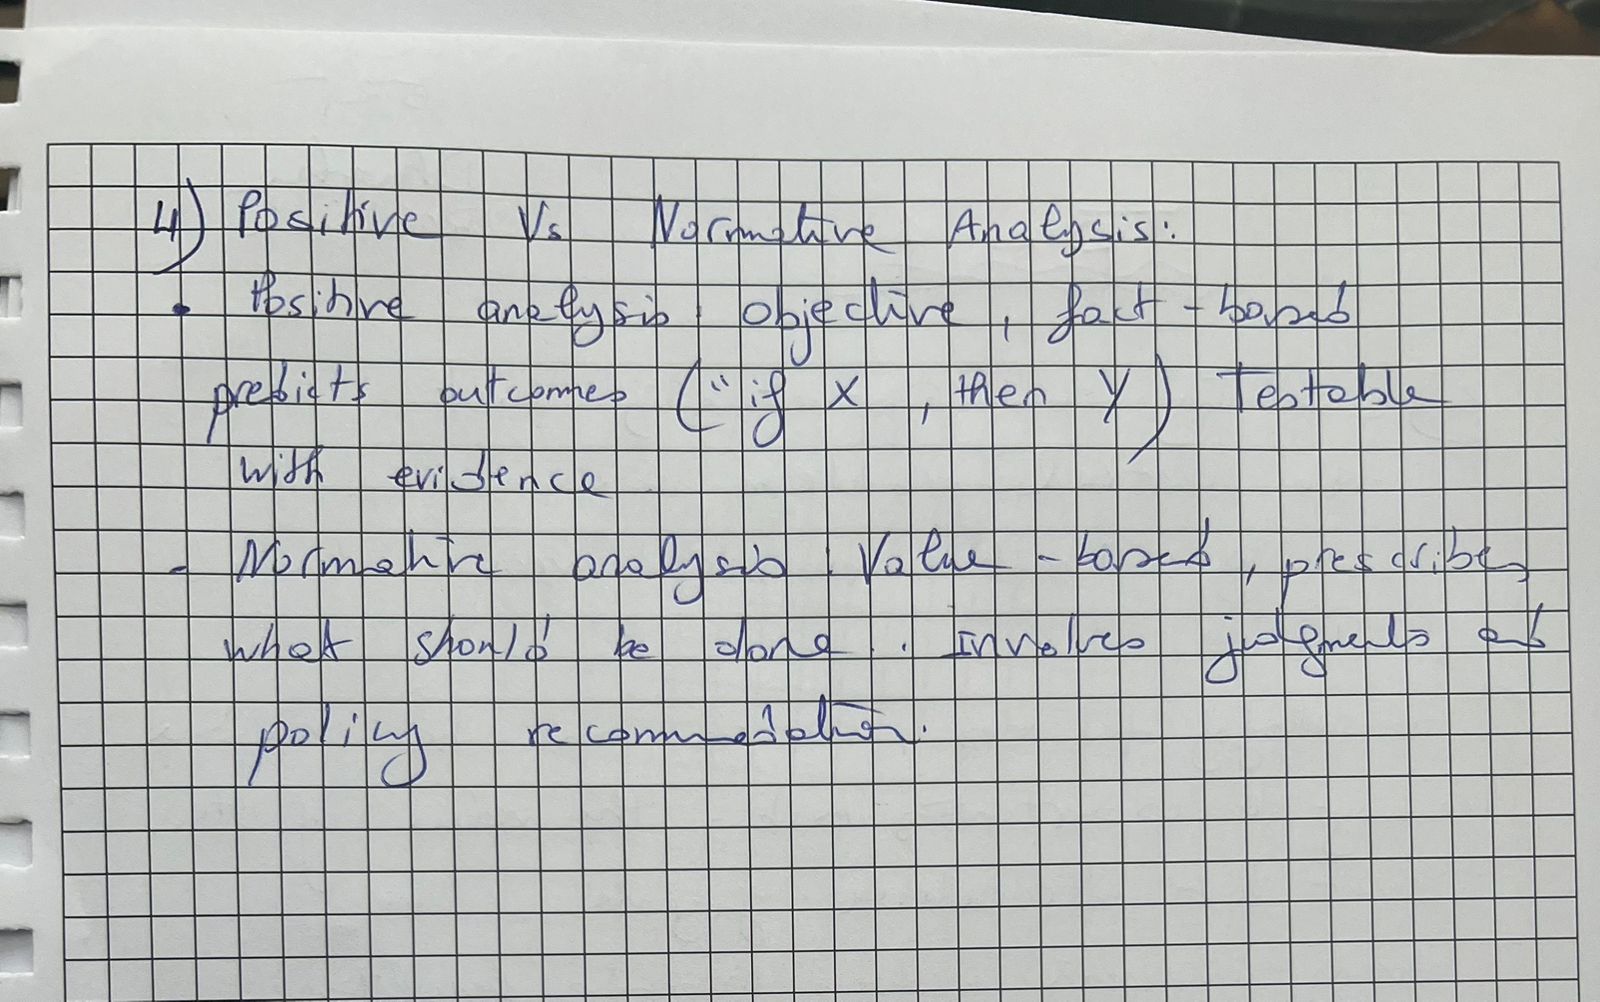 4) Positive Vs Normative Analysis:
• Positive analysis : objective , fact - based
predicts outcomes ("if X , then Y) Testable
with evidence
- Normative analysis . Value - based , prescribes
what should be done . Involves judgments and
policy recommendation.